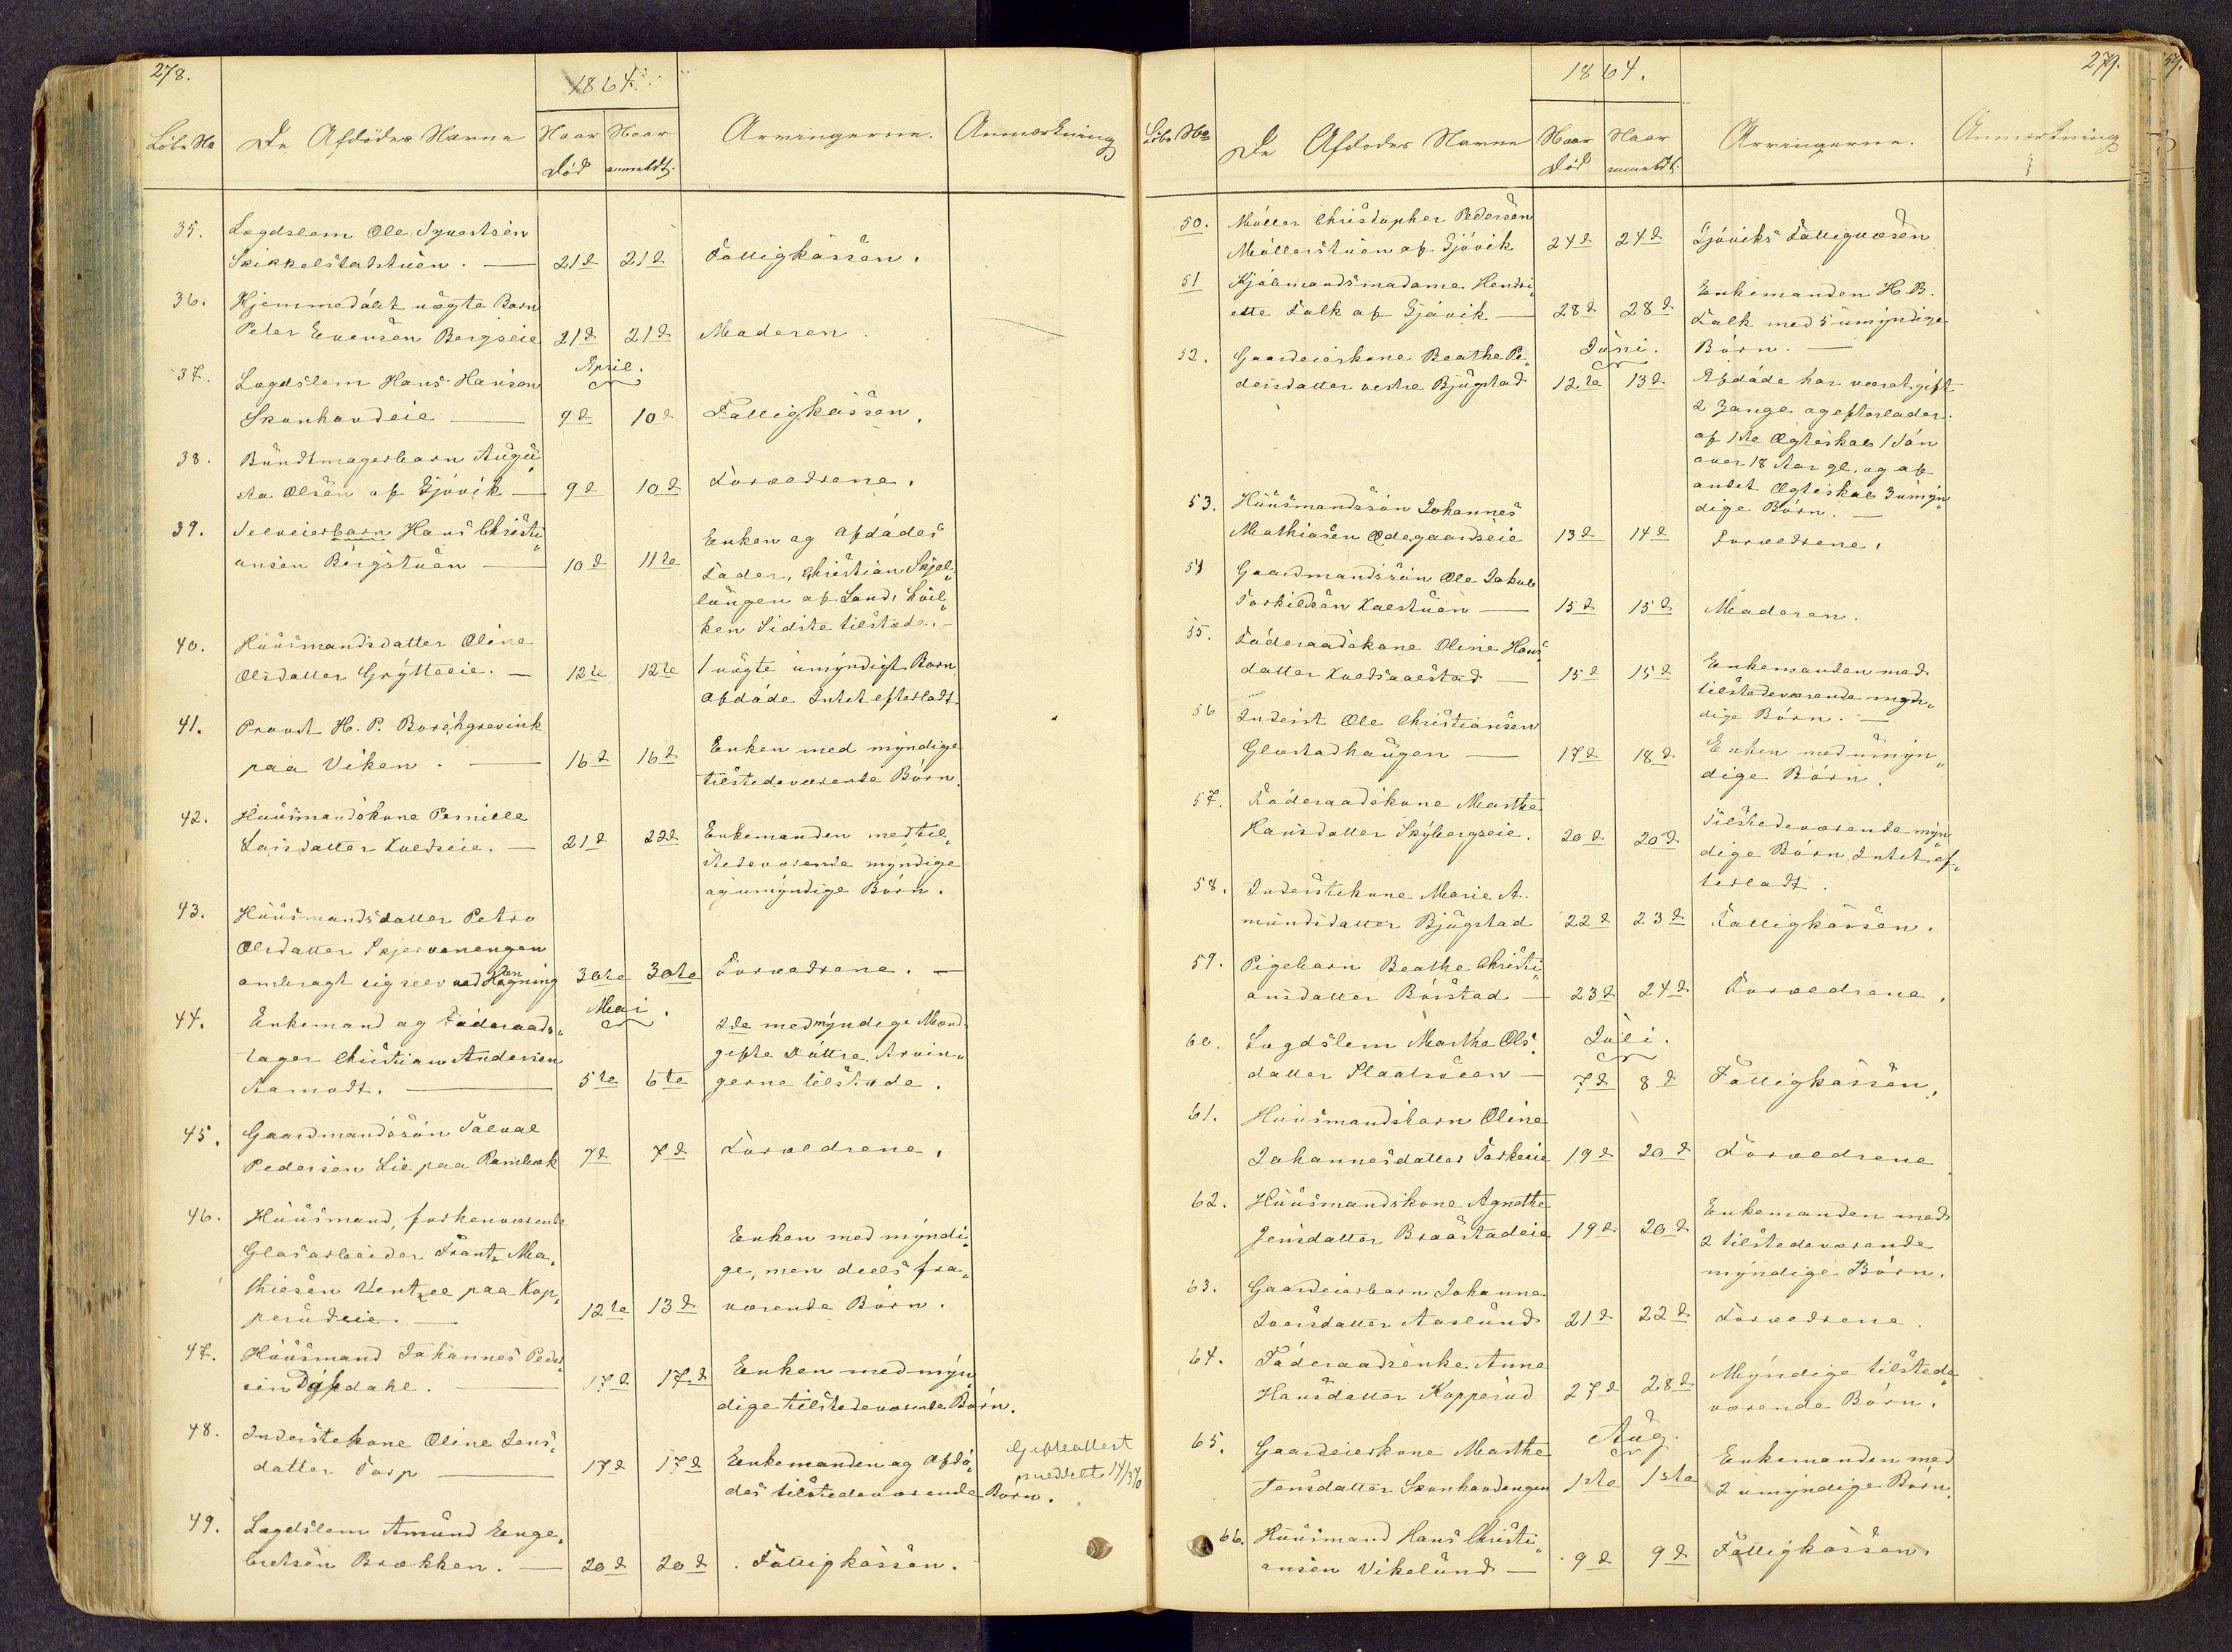 278.
1864.
Löbe No
De Afdødes Navne
Naar Død
Naar anmeldt.
Arvingerne.
Anmærkning
35. Lægdslem Ole Syvertsen
Skikkelstadstuen. — 21d 21d Fattigkassen.
36. Hjemmedøbt uægte Barn
Peter Evensen Bergseie 21d 21d Moderen.
April.
37. Lægdslem Hans Hansen
Skonhovdeie — 9d 10d Fattigkassen.
38. Bundtmagerbarn Augu„
sta Olsen af Gjøvik — 9d 10d Forældrene.
39. Selveierbarn Hans Christi„
ansen Bergstuen — 10d 11te Enken og Afdødes
Fader, Christian Skjel„
lungen af Land, hvil„
ken Sidste tilstede. –
40. Huusmandsdatter Oline
Olsdatter Grytteeie. — 12te 12te 1 uægte umyndigt Barn
Afdøde Intet efterladt.
41. Provst H. P. Borchgrevink
paa Viken. — 16d 16d Enken med myndige
tilstedeværende Børn.
42. Huusmandskone Pernille
Larsdatter Kvedseie. — 21d 22d Enkemanden med til„
stedeværende myndige
og umyndige Børn.
43. Huusmandsdatter Petra
Olsdatter Skjervenengen
ombragt sig selv ved Hængning 30te 30te Forældrene. —
Mai.
44. Enkemand og Føderaads„
tager Christian Andersen
Aamodt. — 5te 6te 2de med myndige Mænd
gifte Døttre. Arvin„
gerne tilstede.
45. Gaardmandssøn Paeval
Pedersen Lie paa Rambæk 7d 7d Forældrene.
46. Huusmand, forhenværende
Glasarbeider Frantz Ma„
thiesen Wentzel paa Kop„
perudeie. — 12te 13d Enken med myndi„
ge, men deels fra„
værende Børn.
47. Huusmand Johannes Peder„
sen Dysedahl. — 17d 17d Enken med myn„
dige tilstedeværende Børn.
48. Inderstekone Oline Jens„
datter Torp — 17d 17d Enkemanden og Afdø„
des tilstedeværende Børn.
49. Lægdslem Amund Enge„
bretsen Brækken. — 20d 20d Fattigkassen.
279.
1864.
Löbe No
De Afdødes Navne
Naar Død
Naar anmeldt.
Arvingerne.
Anmærkning
50. Møller Christopher Pedersen
Møllerstuen af Gjøvik 24d 24d Gjøviks Fattigvæsen
51 Kjøbmandsmadame Hendri„
ette Falk af Gjøvik — 28d 28d Enkemanden H. B.
Falk med 5 umyndige
Børn. —
Juni.
52. Gaardeierkone Beathe Pe„
dersdatter vestre Bjugstad 12te 13d Afdøde har været gift
2 Gange og efterlader
af 1ste Ægteskab 1 Søn
over 18 Aar gl. og af
andet Ægteskab 3 umyn„
dige Børn. —
53. Huusmandssøn Johannes
Mathiasen Ødegaardseie 13d 14d Forældrene.
54 Gaardmandssøn Ole Jakob
Torkildsen Kalstuen — 15d 15d Moderen.
55. Føderaadskone Oline Hans„
datter Kvedsaaestad — 15d 15d Enkemanden med
tilstedeværende myn„
dige Børn. —
56 Inderst Ole Christiansen
Glæstadhaugen — 17d 18d Enken med umyn„
dige Børn.
57. Føderaadskone Marthe
Hansdatter Skybergseie. 20d 20d Tilstedeværende myn„
dige Børn Intet ef„
terladt.
58. Inderstekone Marie A„
mundsdatter Bjugstad 22d 23d Fattigkassen.
59. Pigebarn Beathe Christi„
ansdatter Børstad — 23d 24d Forældrene.
Juli.
60. Lægdslem Marthe Ols„
datter Plaatsveen — 7d 8d Fattigkassen.
61. Huusmandsbarn Oline
Johannesdatter Torkeeie 19d 20d Forældrene
62. Huusmandskone Agnethe
Jensdatter Braastadeie 19d 20d Enkemanden med
2 tilstedeværende
myndige Børn.
63. Gaardeierbarn Johanne
Iversdatter Aaslund 21d 22d Forældrene.
64. Føderaadsenke Anne
Hansdatter Kopperud 27d 28d Myndige tilstede„
værende Børn.
Aug.
65. Gaardeierkone Marthe
Jensdatter Skonhovdengen 1ste 1ste Enkemanden med
2 umyndige Børn.
66. Huusmand Hans Christi„
ansen Vikelund — 9d 9d Fattigkassen.